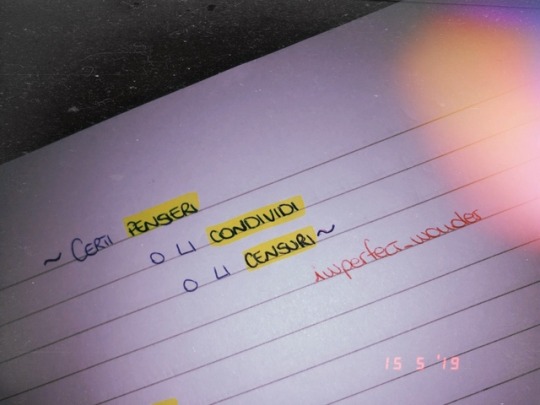 ~ CERTI PENSIERI
O LI CONDIVIDI
O LI CENSURI ~
imperfect_wonder
15 5 '19